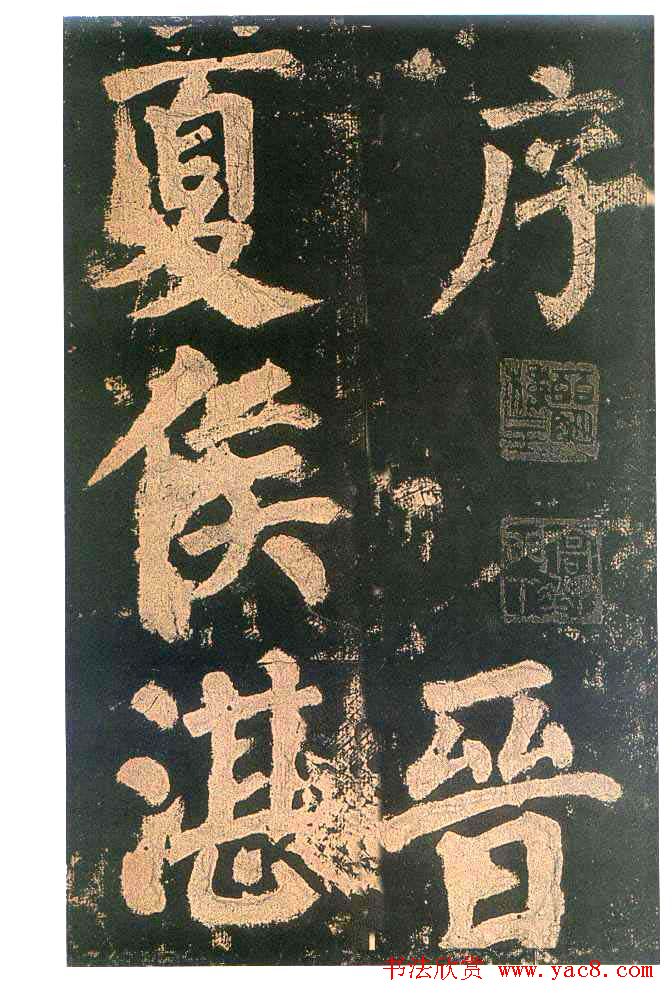 序
晉
夏侯湛
书法欣赏 www.yac8.com